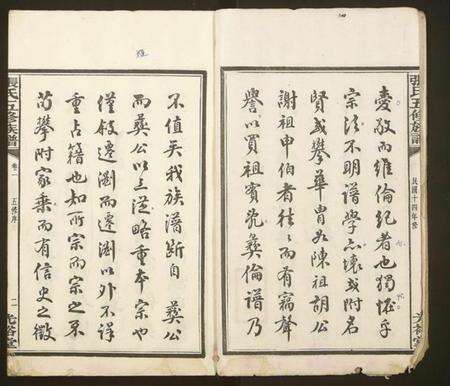 張氏五修族譜
民國十四年修
光裕堂
愛敬而維倫紀者也獨怪乎
宗法不明譜學亦壞或附名
賢或攀華胄如陳祖胡公
謝祖申伯者往往而有竊聲
譽以買祖賓冗彝倫譜乃
不值矣我族譜斷自 彝公
而彝公以上從略重本宗也
僅敘遷瀏而遷瀏以外不詳
重占籍也如所宗而宗之不
苟攀附家乘而有信史之徵
張氏五修族譜
卷一
五修序
二
光裕堂